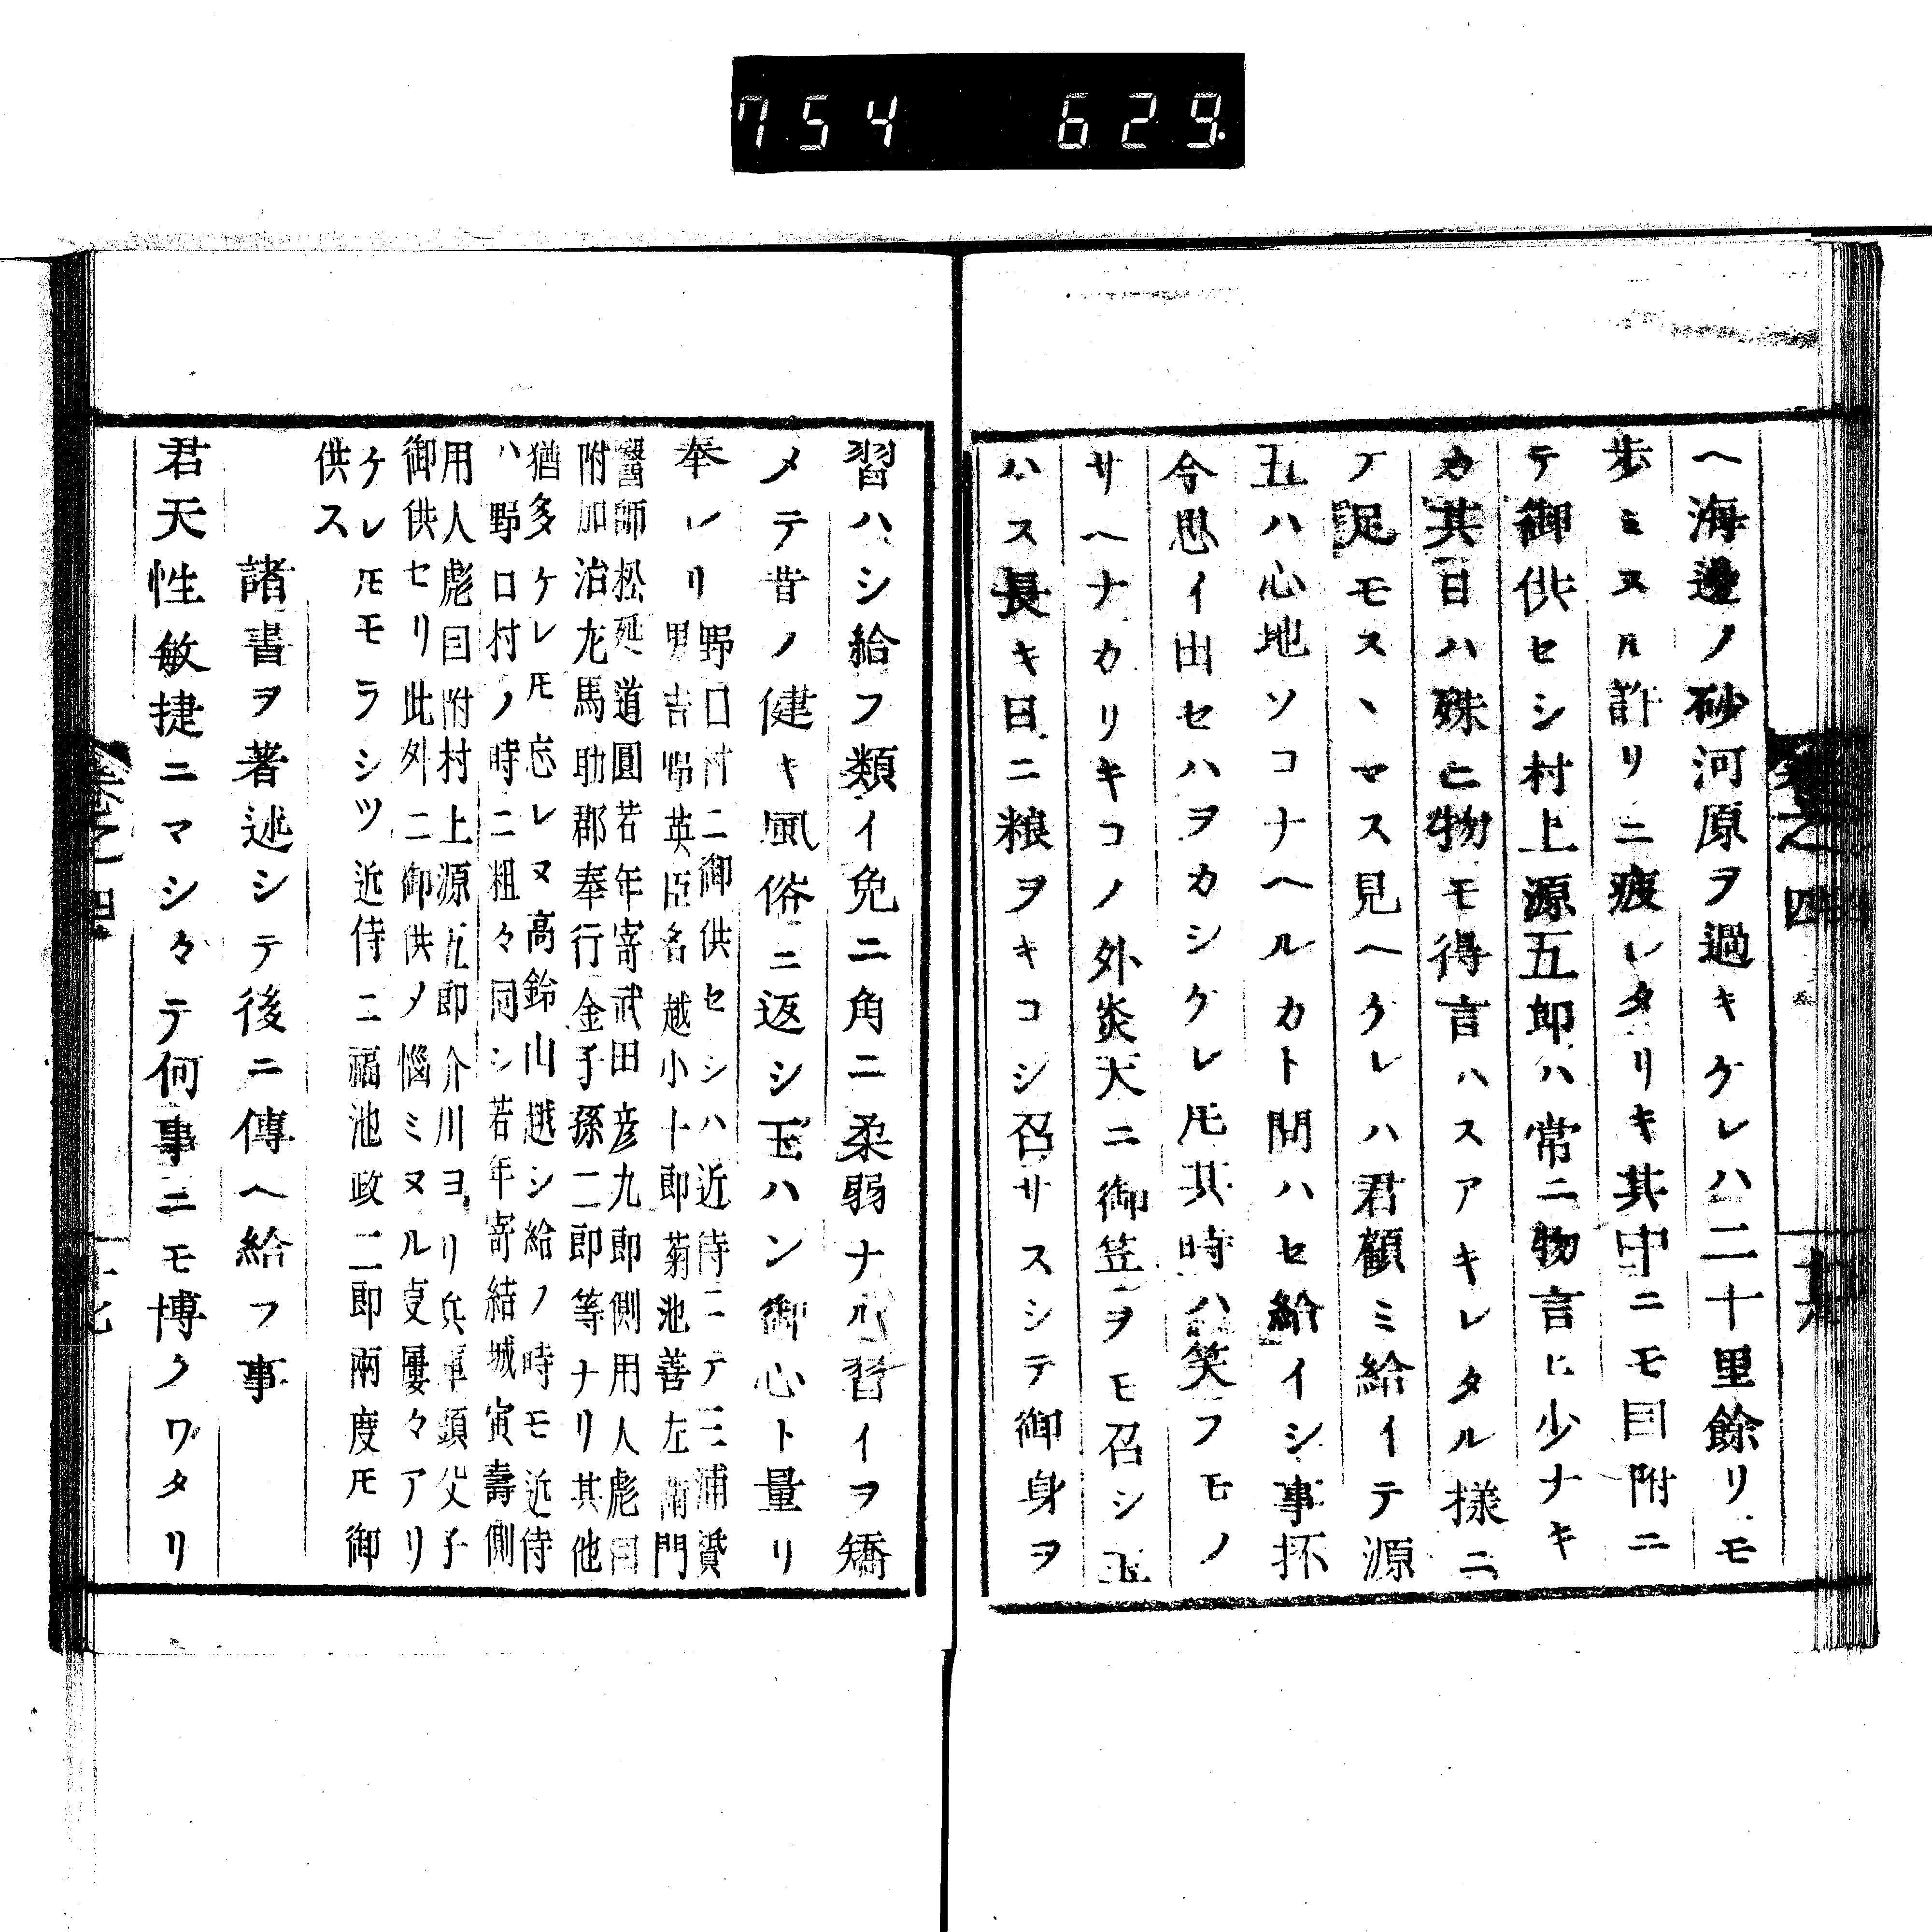 754 629
ヘ海邊ノ砂河原ヲ過キケレハ二十里餘リモ
歩ミヌル許リニ疲レタリキ其中ニモ目附ニ
テ御供セシ村上源五郎ハ常ニ物言ヒ少ナキ
カ其日ハ殊ニ物モ得言ハスアキレタル様ニ
テ足モスヽマス見ヘケレハ君顧ミ給イテ源
五ハ心地ソコナヘルカト問ハセ給イシ事抔
今思イ出セハヲカシケレ𪜈其時ハ笑フモノ
サヘナカリキコノ外炎天ニ御笠ヲモ召シ玉
ハス長キ日ニ粮ヲキコシ召サスシテ御身ヲ
習ハシ給フ類イ免ニ角ニ柔弱ナル習イヲ矯
メテ昔ノ健キ風俗ニ返シ玉ハン御心ト量リ
奉レリ
野口村ニ御供セシハ近侍ニテ三浦贇
男吉 英臣名越小十郎菊池善左衛門
醫師松延道圓若年寄武田彦九郎側用人彪目
附加治左馬助郡奉行金子孫二郎等ナリ其他
猶多ケレ𪜈忘レヌ高鈴山越シ給ノ時モ近侍
ハ野口村ノ時ニ粗々同シ若年寄結城寅壽側
用人彪目附村上源五郎介川ヨリ兵 頭父子
御供セリ此外ニ御供メ惱ミヌル叓屢々アリ
ケレ𪜈モラシツ近侍ニ福池政二郎兩度𪜈御
供ス
諸書ヲ著述シテ後ニ傳ヘ給フ事
君天性敏捷ニマシ々テ何事ニモ博クワタリ